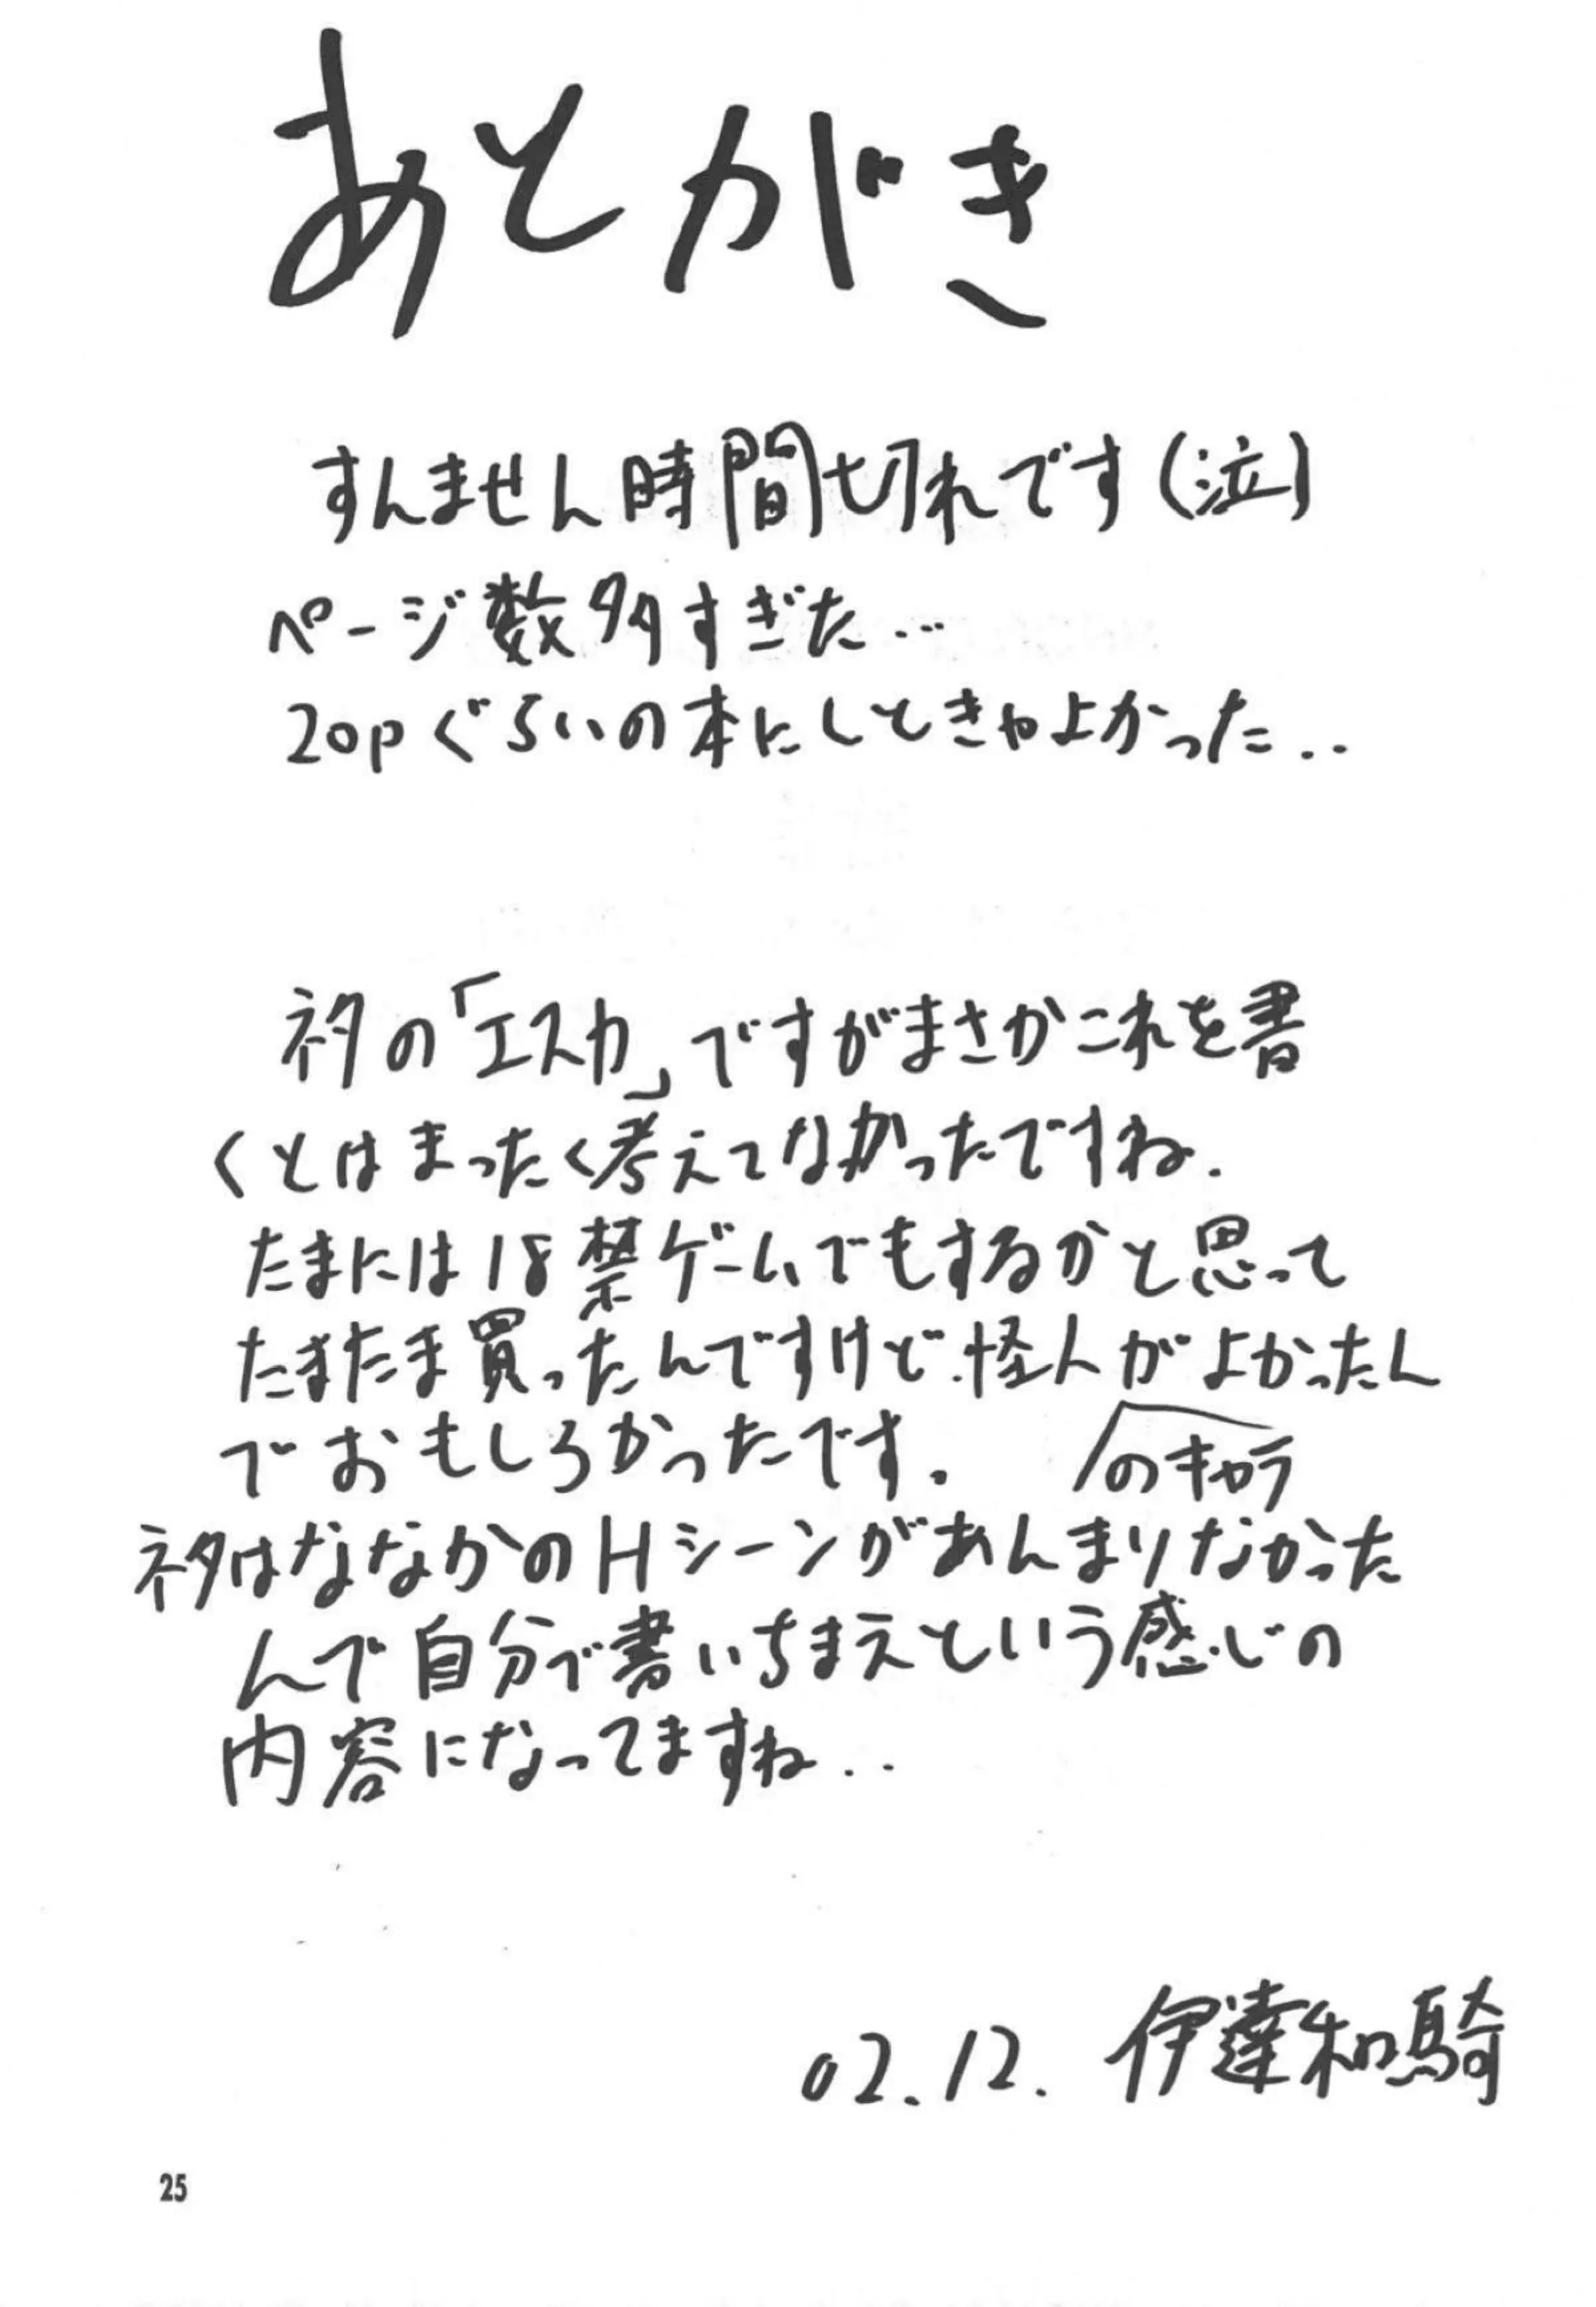 あとがき
すんません時間切れです(泣)
ページ数多すぎた…
20pぐらいの本にしときゃよかった..
ネタの「エスカ」ですがまさかこれを書
くとはまったく考えてなかったですね.
たまには18禁ゲームでもするかと思って
たまたま買ったんですけど.怪人がよかったん
のキャラ
でおもしろかったです.
ネタはななかのHシーンがあんまりなかった
んで自分で書いちまえという感じの
内容になってますね..
02.12. 伊達和騎
25